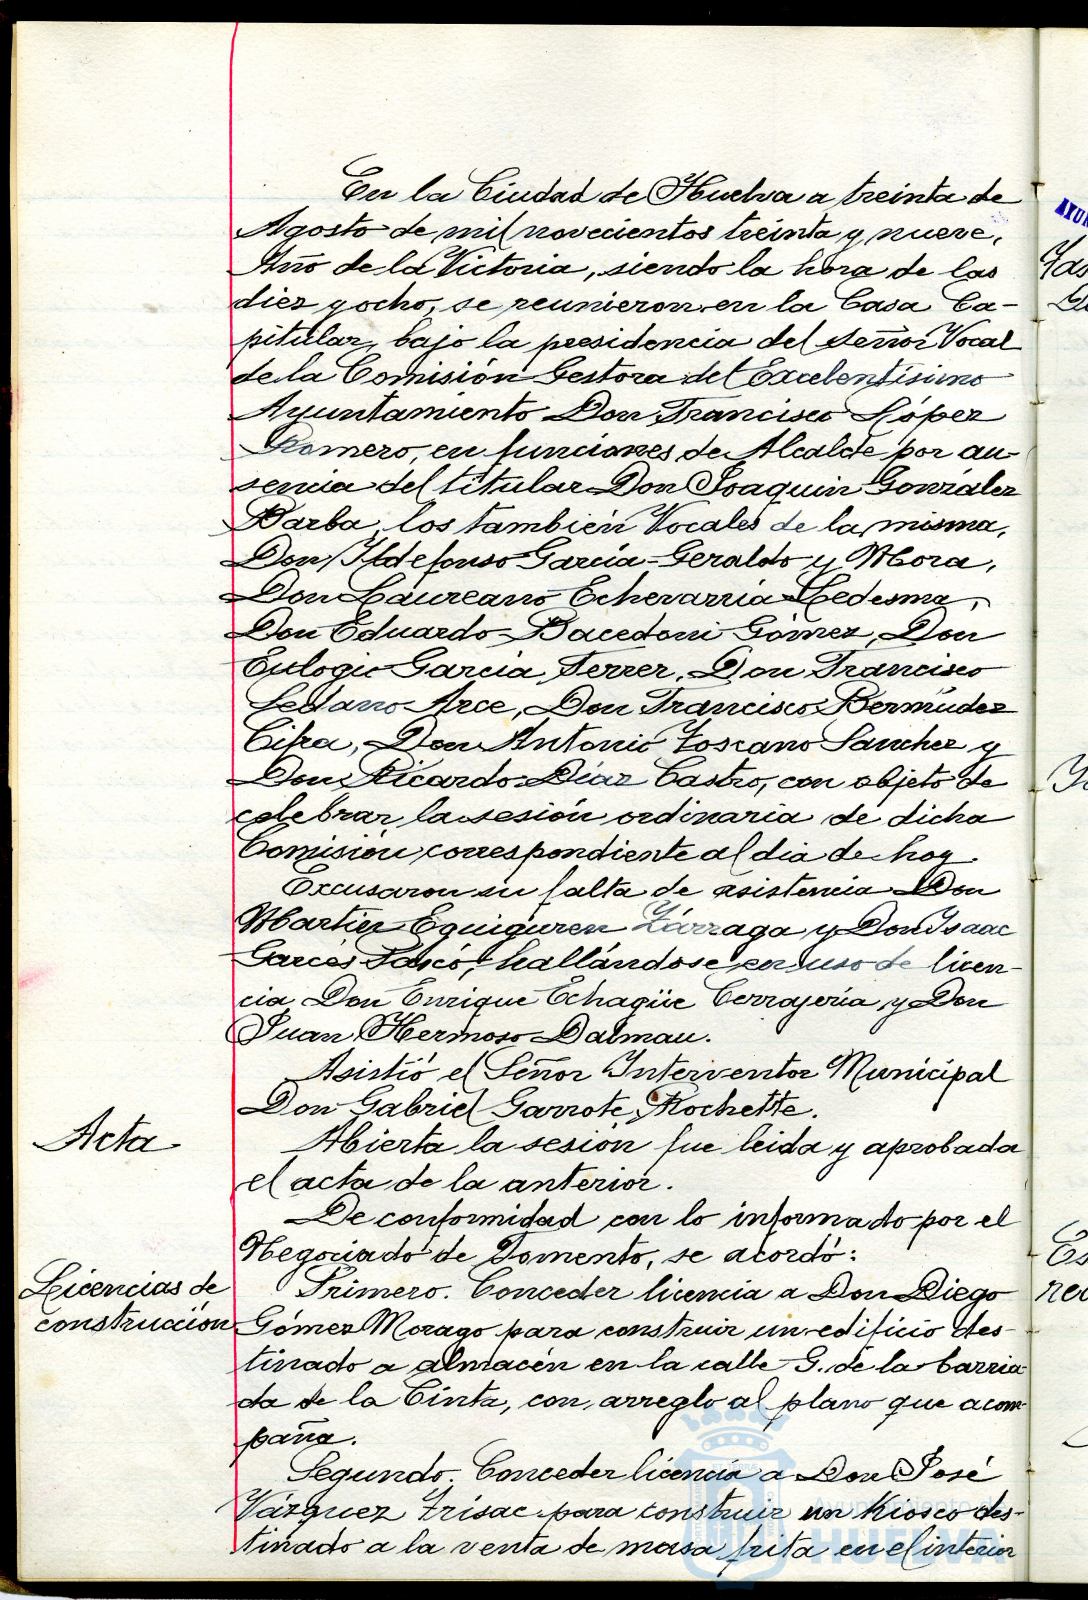 En la Ciudad de Huelva a treinta de
Agosto de mil novecientos treinta y nueve,
Año de la Victoria, siendo la hora de las
diez y ocho, se reunieron en la Casa Ca-
pitular, bajo la presidencia del señor Vocal
de la Comisión Gestora del Excelentísimo
Ayuntamiento Don Francisco López
Romero, en funciones de Alcalde por au-
sencia del titular Don Joaquín González
Barba, los también Vocales de la misma,
Don Ildefonso García-Geraldo y Mora,
Don Laureano Echevarría Ledesma,
Don Eduardo Bacedoni Gómez, Don
Eulogio García Ferrer, Don Francisco
Sedano Arce, Don Francisco Bermúdez
Cifra, Don Antonio Toscano Sanchez y
Don Ricardo Díaz Castro, con objeto de
celebrar la sesión ordinaria de dicha
Comisión correspondiente al dia de hoy.
Excusaron su falta de asistencia Don
Martín Eguiguren Zárraga y Don Isaac
Garcés hallándose en uso de licen-
cia Don Enrique Echagüe Cerrajería y Don
Juan Hermoso Dalmau.
Asistió el Señor Interventor Municipal
Don Gabriel Garrote Rochette.
Acta
Abierta la sesión fue leida y aprobada
el acta de la anterior.
De conformidad con lo informado por el
Negociado de Fomento, se acordó:
Licencias de
construcción
Primero. Conceder licencia a Don Diego
Gómez Morago para construir un edificio des-
tinado a almacén en la calle G. de la barria
da de la Cinta, con arreglo al plano que acom-
paña.
Segundo. Conceder licencia a Don José
Vázquez para construir un Kiosco des-
tinado a la venta de masa frita en el interior
Ayuntamiento de
HUELVA